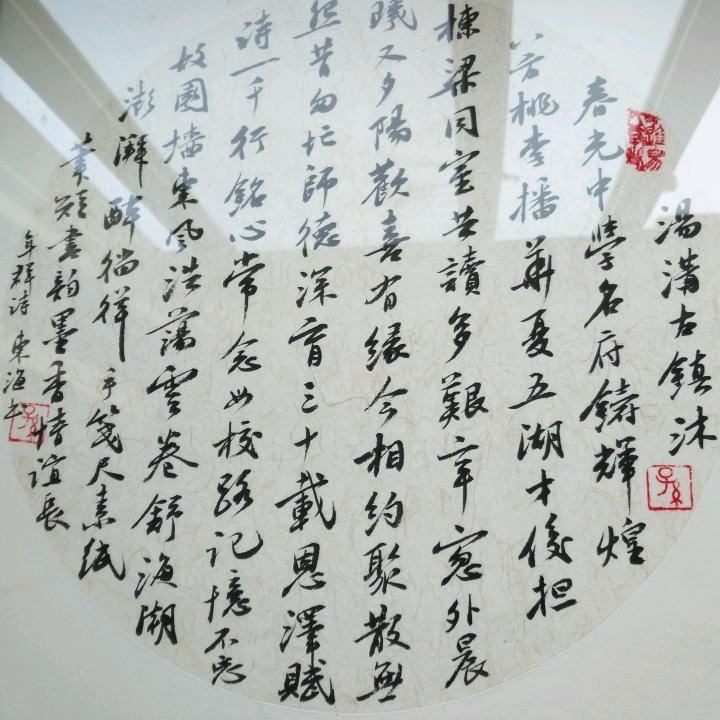 湯溝古鎮沐
春光中學名府鑄輝煌
芳桃李播華夏五湖才俊担
棟梁同室共讀多艱辛窓外晨
曦又夕陽歡喜有緣今相約聚散無
怨昔匆忙師德深育三十載恩澤賦
詩一千行銘心常念母校路記憶不忘
故園墻東風浩蕩雲卷舒海潮
澎湃醉徜徉手箋尺素紙
短書韵墨香情誼長
年群詩 東海书